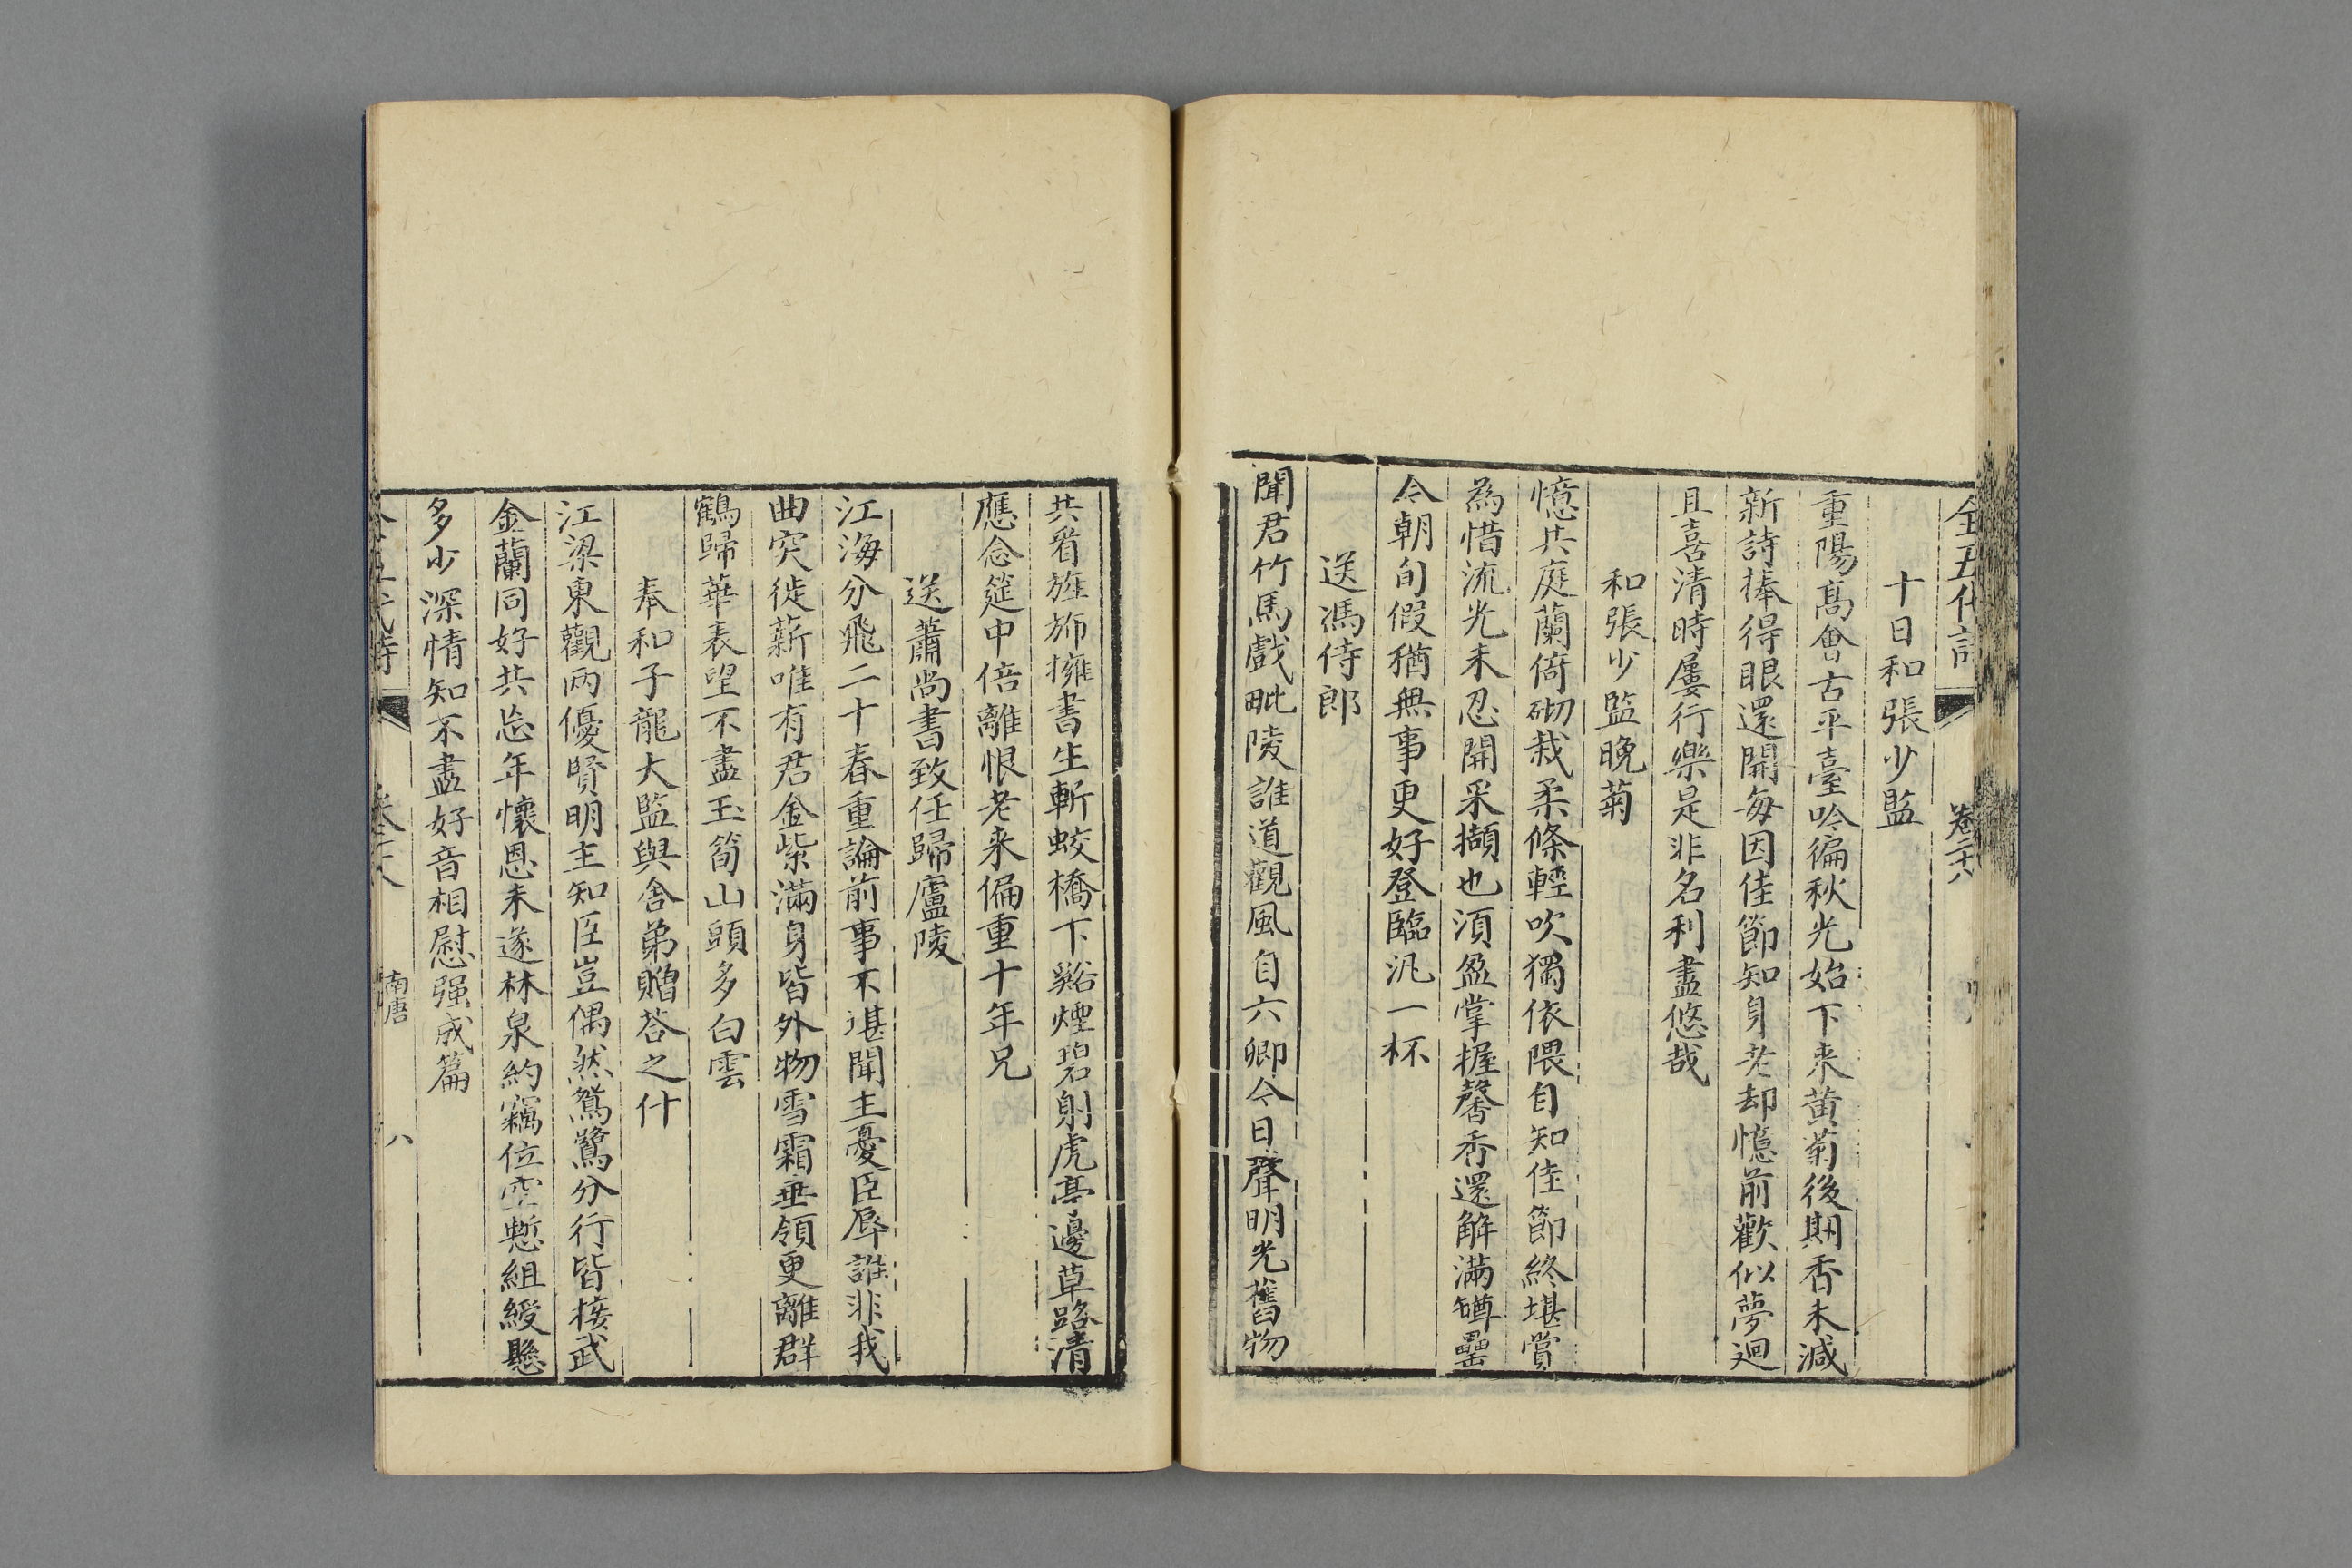 全五代詩 卷三十八
十日和張少監
重陽髙會古平臺吟徧秋光始下來黄菊後期香未減
新詩捧得眼還開每因佳節知身老却憶前歡似夢迴
且喜清時屢行樂是非名利盡悠哉
和張少監晚菊
憶共庭蘭倚砌栽柔條輕吹獨依隈自知佳節終堪賞
為惜流光未忍開采擷也須盈掌握馨香還解滿罇罍
今朝旬假猶無事更好登臨汎一杯
送馮侍郎
聞君竹馬戲毗陵誰道觀風自六卿今日聲明光舊物
共看旌斾擁書生斬蛟橋下谿煙碧射虎亭邊草路清
應念筵中倍離恨老來偏重十年兄
送蕭尚書致仕歸廬陵
江海分飛二十春重論前事不堪聞主憂臣辱誰非我
曲突徙薪唯有君金紫滿身皆外物雪霜垂領更離群
鶴歸華表望不盡玉笥山頭多白雲
奉和子龍大監與舍弟贈荅之什
江梁東觀兩優賢明主知臣豈偶然鴛鷺分行皆接武
金蘭同好共忘年懷恩未遂林泉約竊位空慙組綬懸
多少深情知不盡好音相慰强成篇
南唐 八